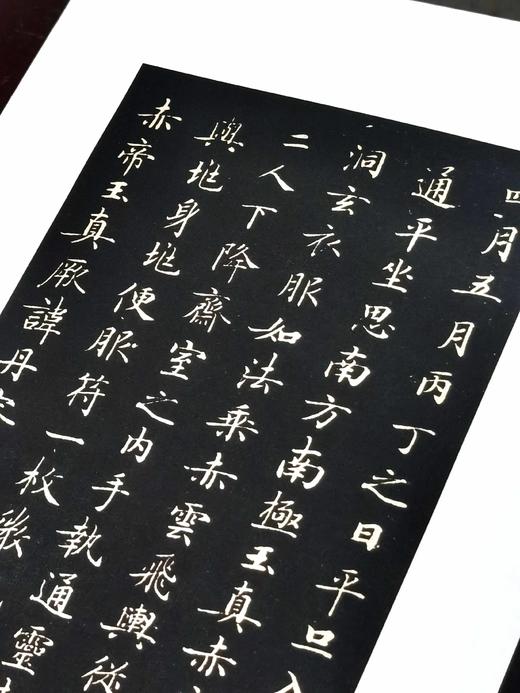 四月五月丙丁之日平旦入
通平坐思南方南極玉真赤
洞玄衣服如法乘赤雲飛輿從
二人下降齋室之内手執通靈
與垗身垗便服符一枚微
赤帝玉真厥諱丹